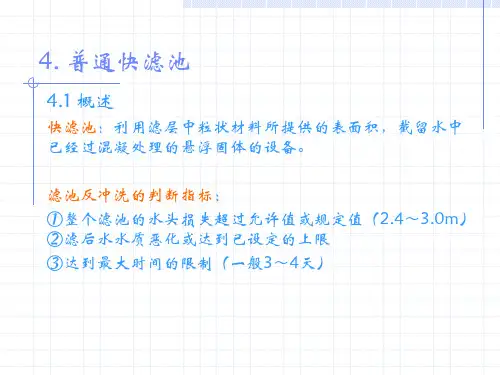 4. 普通快滤池
4.1 概述
快滤池：利用滤层中粒状材料所提供的表面积，截留水中
已经过混凝处理的悬浮固体的设备。
滤池反冲洗的判断指标：
①整个滤池的水头损失超过允许值或规定值（2.4～3.0m）
②滤后水水质恶化或达到已设定的上限
③达到最大时间的限制（一般3～4天）